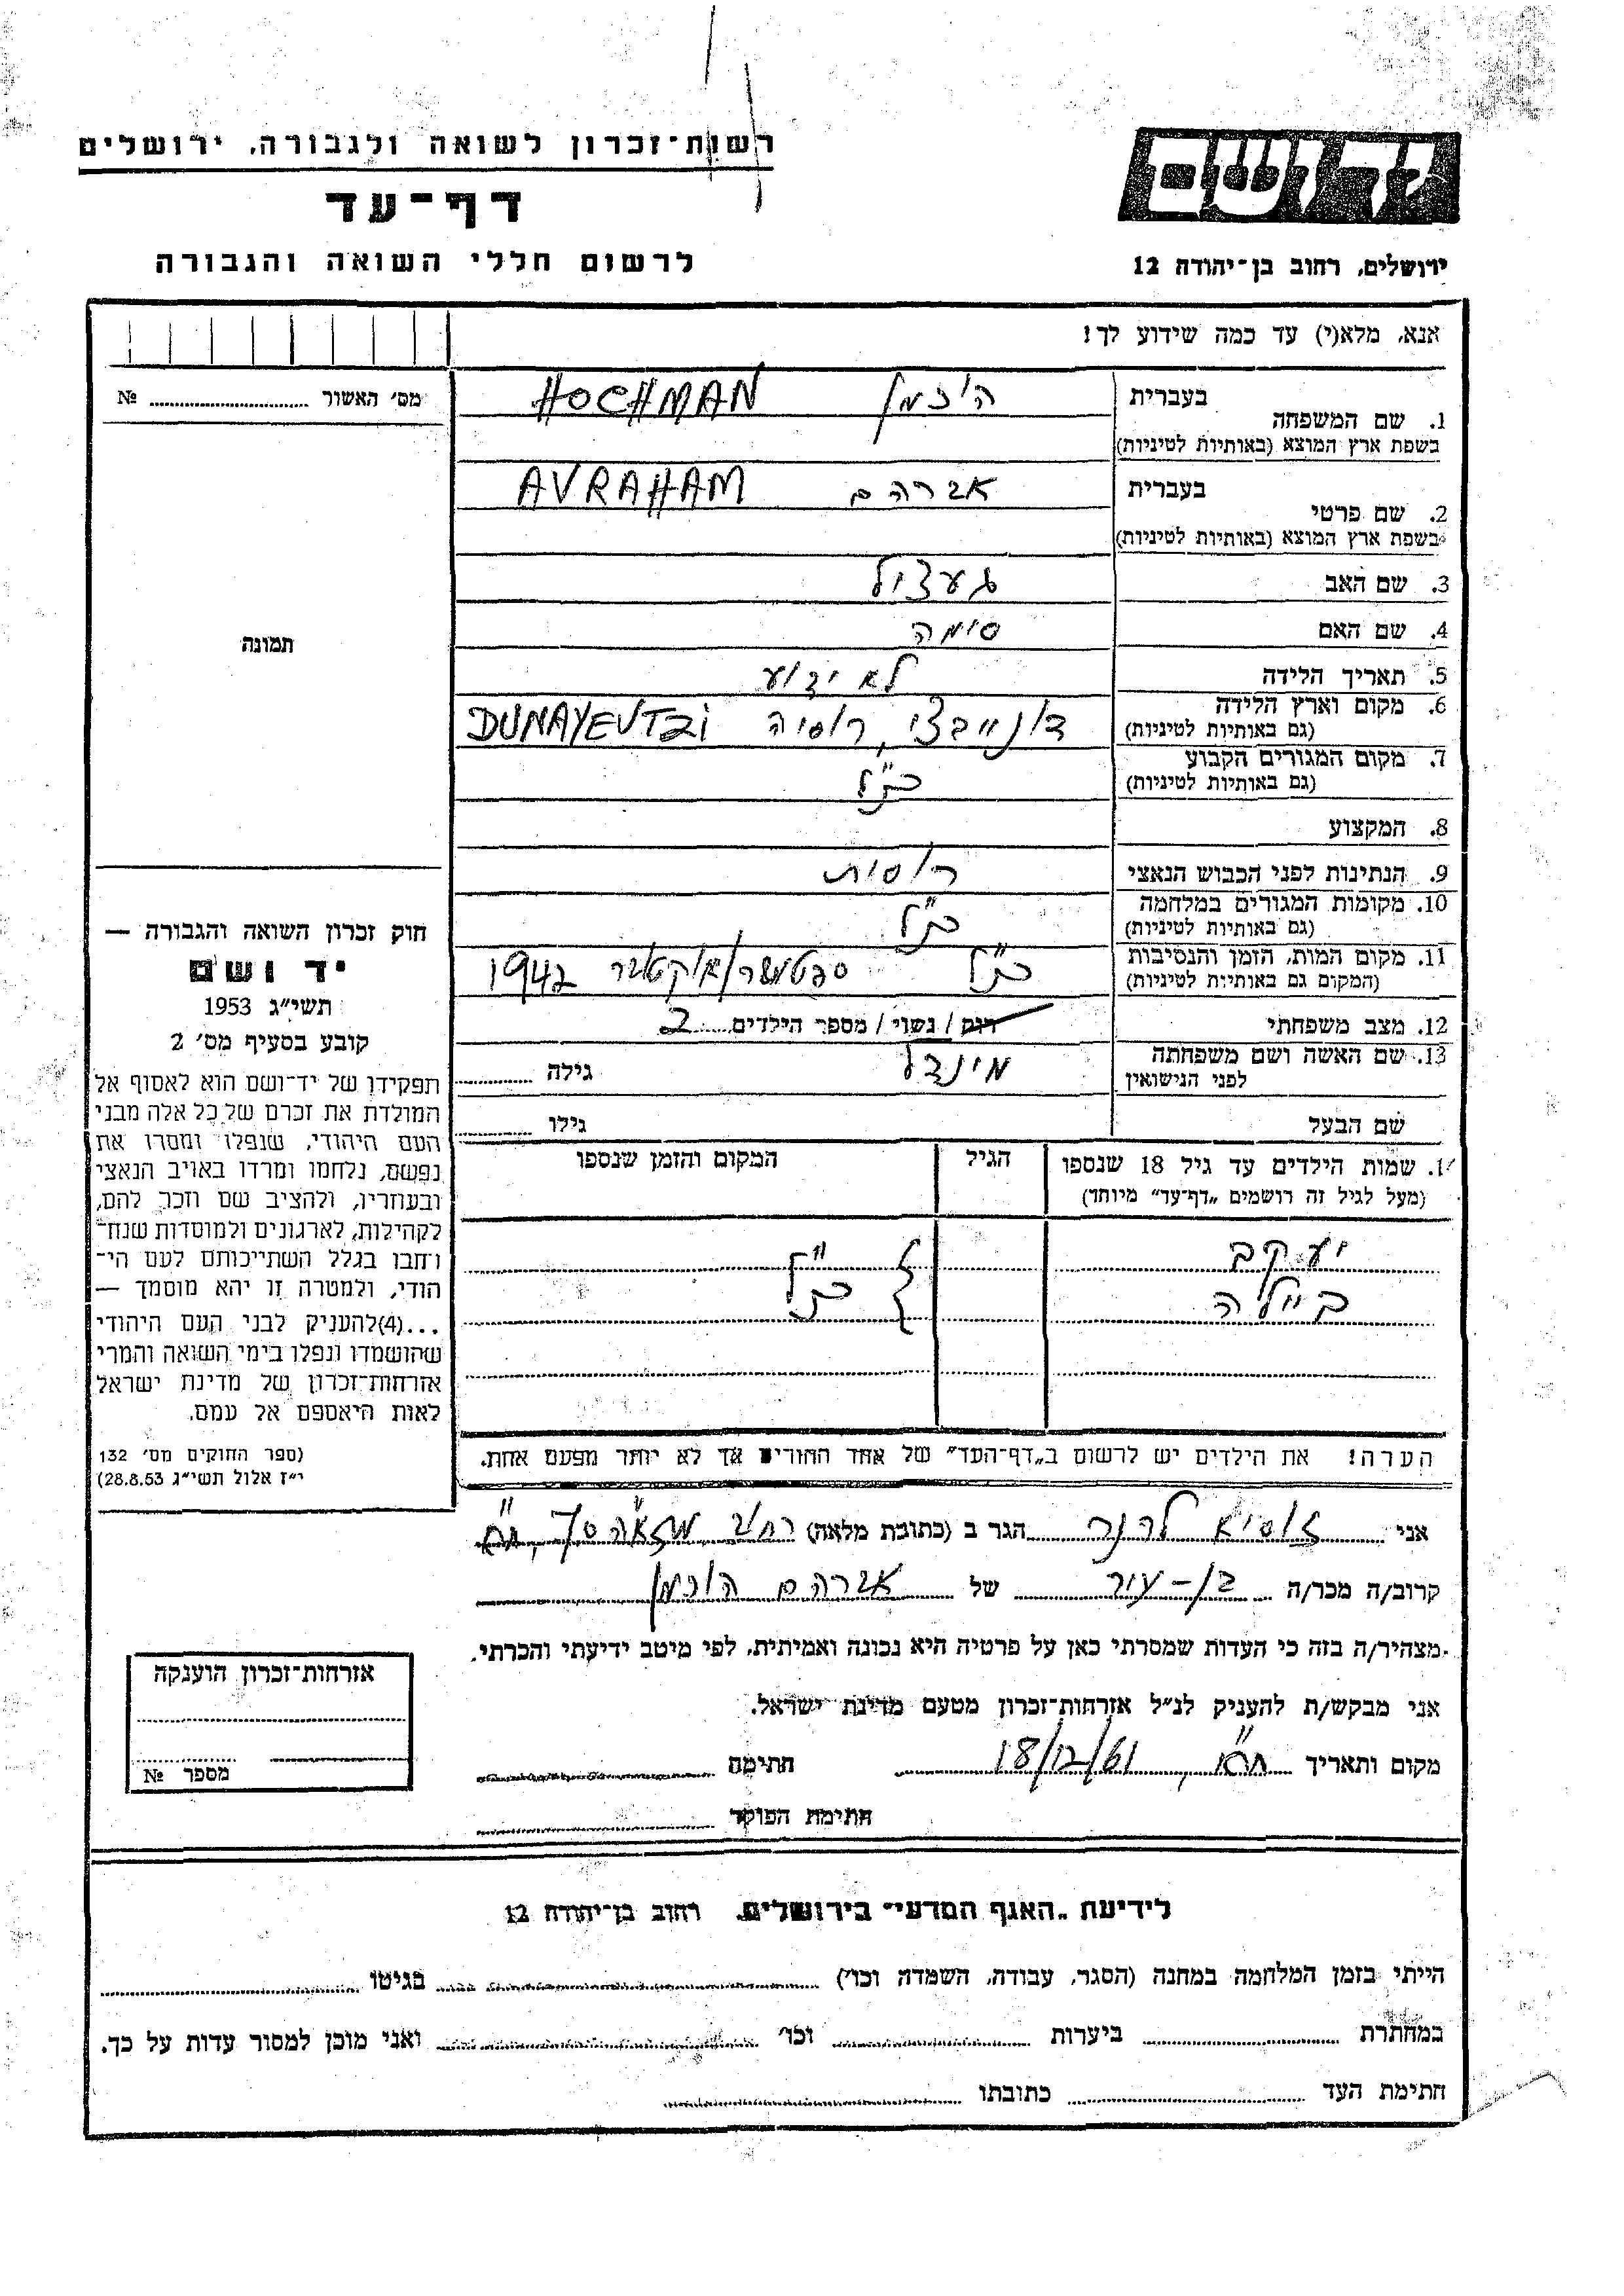 רשות־זכרון לשואה ולגבורה, ירושלים
דף־עד
לרשום חללי השואה והגבורה
יד ושם
ירושלים, רחוב בן־יהודה 12
אנא, מלא(י) עד כמה שידוע לך!
בעברית הוכמן HOCHMAN
1. שם המשפחה
בשפת ארץ המוצא (באותיות לטיניות)
בעברית אברהם AVRAHAM
2. שם פרטי
בשפת ארץ המוצא (באותיות לטיניות)
3. שם האב געצול
4. שם האם סימה
5. תאריך הלידה לא ידוע
6. מקום וארץ הלידה דונייבצי, רוסיה DUNAYEVTZI
(גם באותיות לטיניות)
7. מקום המגורים הקבוע כנ"ל
(גם באותיות לטיניות)
8. המקצוע
9. הנתינות לפני הכבוש הנאצי רוסית
10. מקומות המגורים במלחמה כנ"ל
(גם באותיות לטיניות)
11. מקום המות, הזמן והנסיבות כנ"ל ספטמבר/אוקטובר 1942
(המקום גם באותיות לטיניות)
12. מצב משפחתי רווק / נשוי / מספר הילדים 2
13. שם האשה ושם משפחתה מינדל גילה
לפני הנישואין
שם הבעל גילו
שמות הילדים עד גיל 18 שנספו הגיל המקום והזמן שנספו
(מעל לגיל זה רושמים „דף־עד” מיוחד)
יעקב כנ"ל
ביילה
הערה! את הילדים יש לרשום ב„דף־העד” של אחד ההורים אך לא יותר מפעם אחת.
מס׳ האשור №
תמונה
חוק זכרון השואה והגבורה —
יד ושם
תשי״ג 1953
קובע בסעיף מס׳ 2
תפקידו של יד־ושם הוא לאסוף אל
המולדת את זכרם של כל אלה מבני
העם היהודי, שנפלו ומסרו את
נפשם, נלחמו ומרדו באויב הנאצי
ובעוזריו, ולהציב שם וזכר להם,
לקהילות, לארגונים ולמוסדות שנח־
רבו בגלל השתייכותם לעם הי־
הודי, ולמטרה זו יהא מוסמך —
...(4)להעניק לבני העם היהודי
שהושמדו ונפלו בימי השואה והמרי
אזרחות־זכרון של מדינת ישראל
לאות היאספם אל עמם.
(ספר החוקים מס׳ 132
י״ז אלול תשי״ג 28.8.53)
אני זוסיא לרנר הגר ב (כתובת מלאה) רחוב
קרוב/ה מכר/ה בן-עיר של אברהם הוכמן
מצהיר/ה בזה כי העדות שמסרתי כאן על פרטיה היא נכונה ואמיתית, לפי מיטב ידיעתי והכרתי.
אני מבקש/ת להעניק לנ״ל אזרחות־זכרון מטעם מדינת ישראל.
מקום ותאריך ת"א, 18/12/61 חתימה
חתימת הפוקד
אזרחות־זכרון הוענקה
מספר №
לידיעת „האגף המדעי” בירושלים, רחוב בן־יהודה 12
הייתי בזמן המלחמה במחנה (הסגר, עבודה, השמדה וכו׳) בגיטו
במחתרת ביערות וכו׳ ואני מוכן למסור עדות על כך.
חתימת העד כתובתו